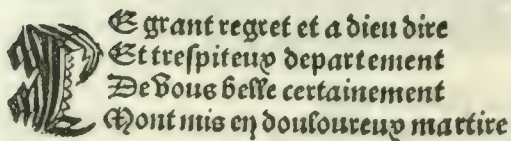 LE grant regret et a dieu dire
Et trespiteux departement
De vous belle certainement
Mont mis en douloureux martire